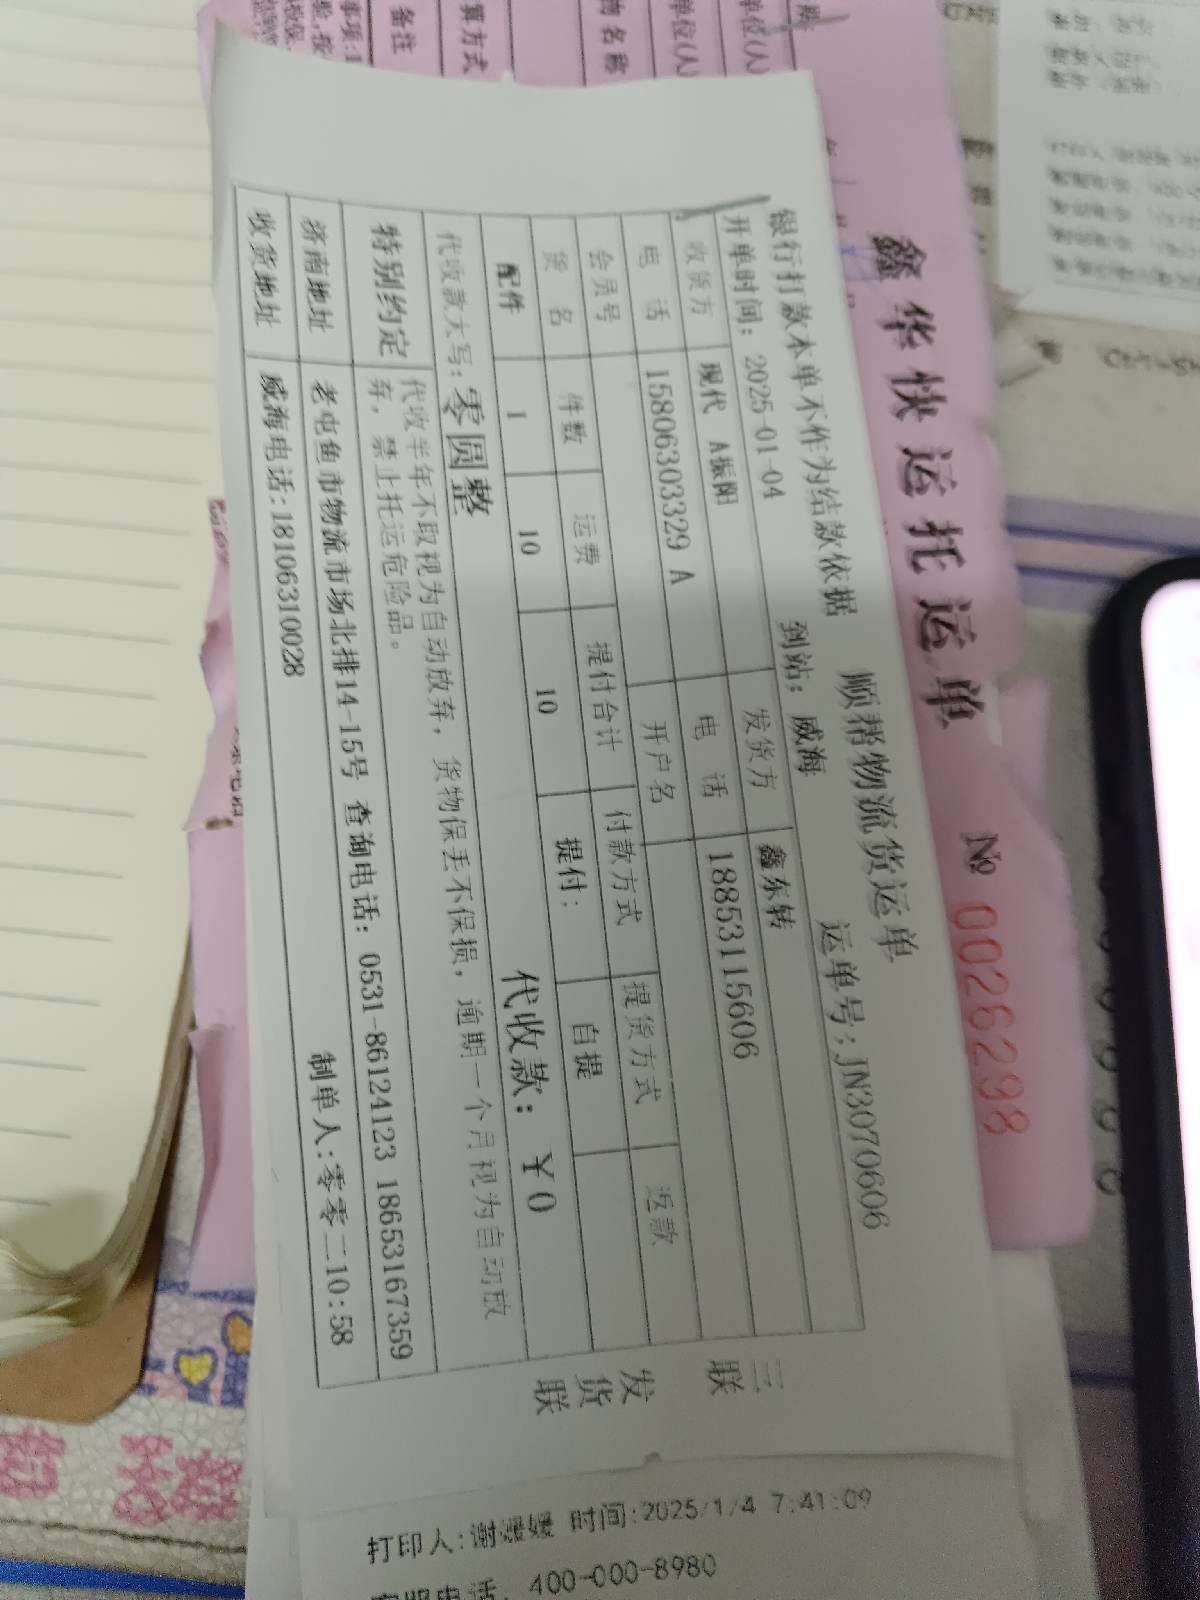 鑫华快运托运单 № 0026298
顺帮物流货运单
银行打款本单不作为结款依据 运单号:JN3070606
开单时间:2025-01-04 到站:威海
收货方 现代 A振阳 发货方 鑫东转
电 话 15806303329 A 电 话 18853115606
会员号 开户名
货 名 件数 运费 提付合计 付款方式 提货方式 返款
配件 1 10 10 提付: 自提
代收款大写:零圆整 代收款:¥0
特别约定 代收半年不取视为自动放弃,货物保丢不保损,逾期一个月视为自动放
弃,禁止托运危险品。
济南地址 老屯鱼市物流市场北排14-15号 查询电话:0531-86124123 18653167359
收货地址 威海电话:18106310028 制单人:零零二10:58
三联
发货联
备注
算方式
物名称
单位(人)
单位(人)
打印人:谢媛媛 时间:2025/1/4 7:41:09
400-000-8980